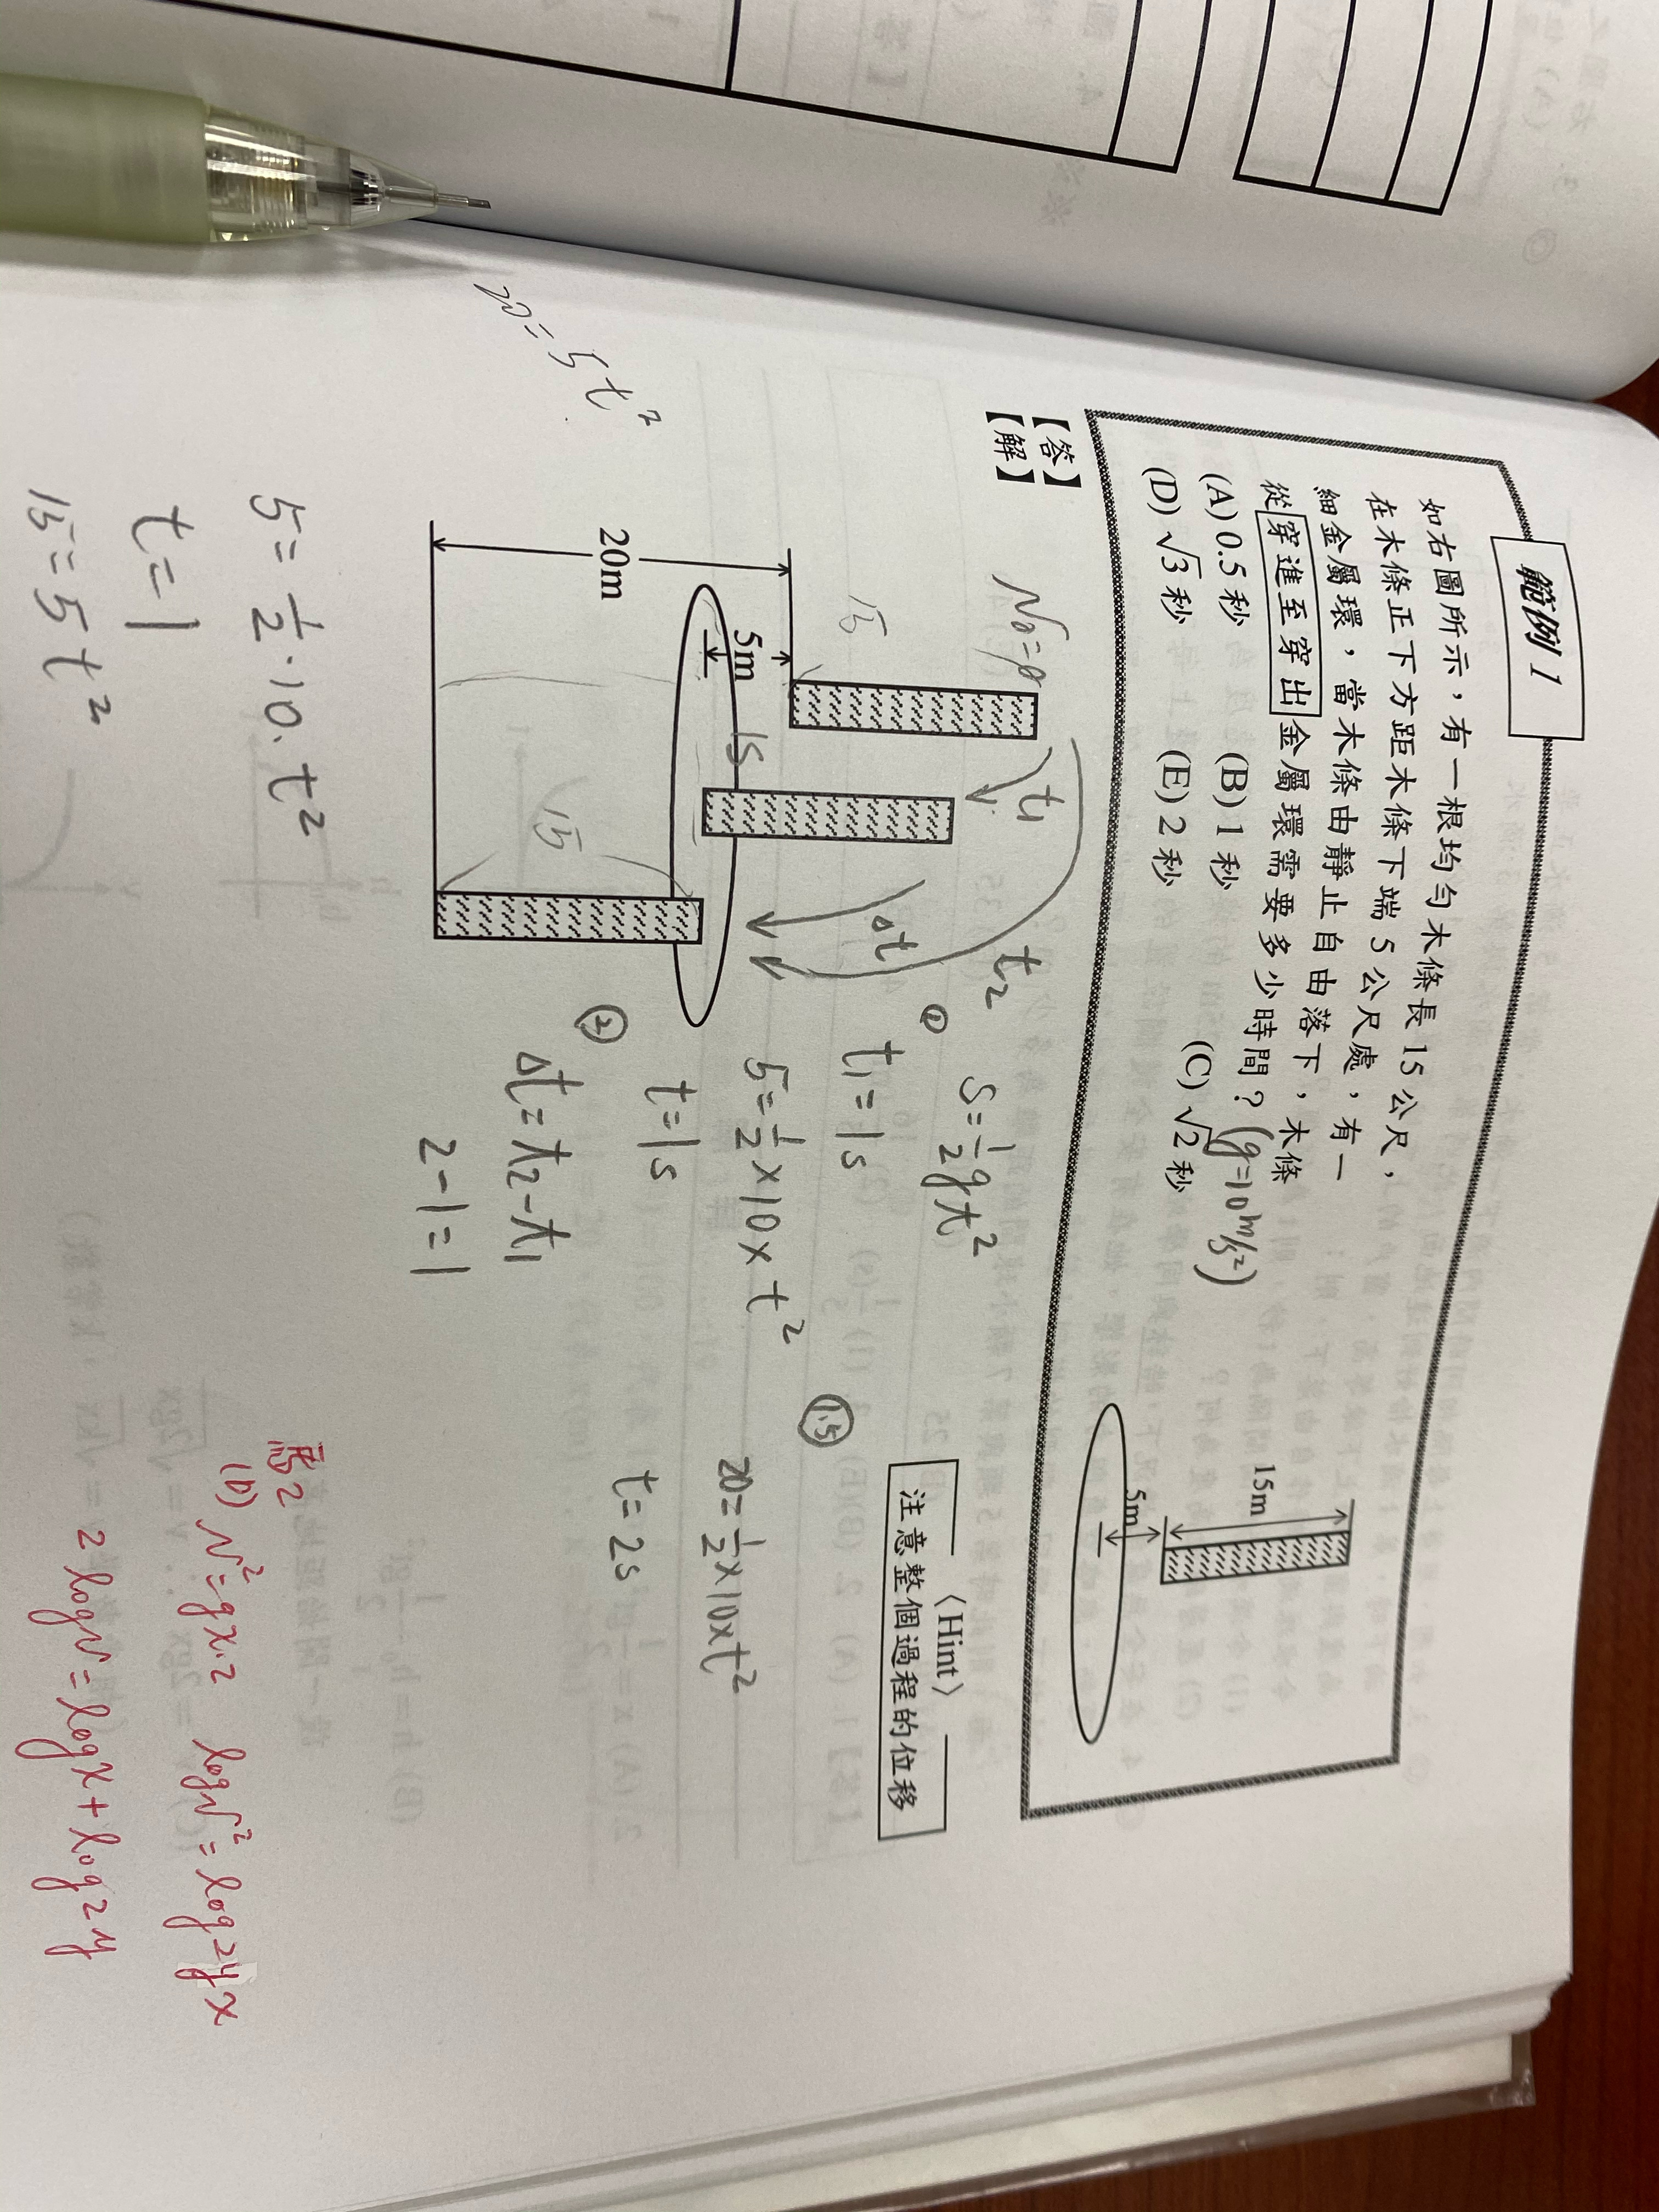 範例 1
如右圖所示，有一根均勻木條長 15 公尺，
在木條正下方距木條下端 5 公尺處，有一
細金屬環，當木條由靜止自由落下，木條
從穿進至穿出金屬環需要多少時間？(g=10m/s²)
(A) 0.5 秒 (B) 1 秒 (C) √2 秒
(D) √3 秒 (E) 2 秒
15m
5m
【答】
【解】
〈Hint〉
注意整個過程的位移
V₀=0
15
t₁
t₂
Δt
5m
15
20m
15
① S=½gt²
t₁=1s
5=½×10×t²
t=1s
1.5
20=½×10×t²
t=2s
② Δt=t₂-t₁
2-1=1
20=5t²
5=½·10·t²
t=1
15=5t²
馬2
(b) v²=gx·2 logv²=log2gx
2logv=logx+log2g